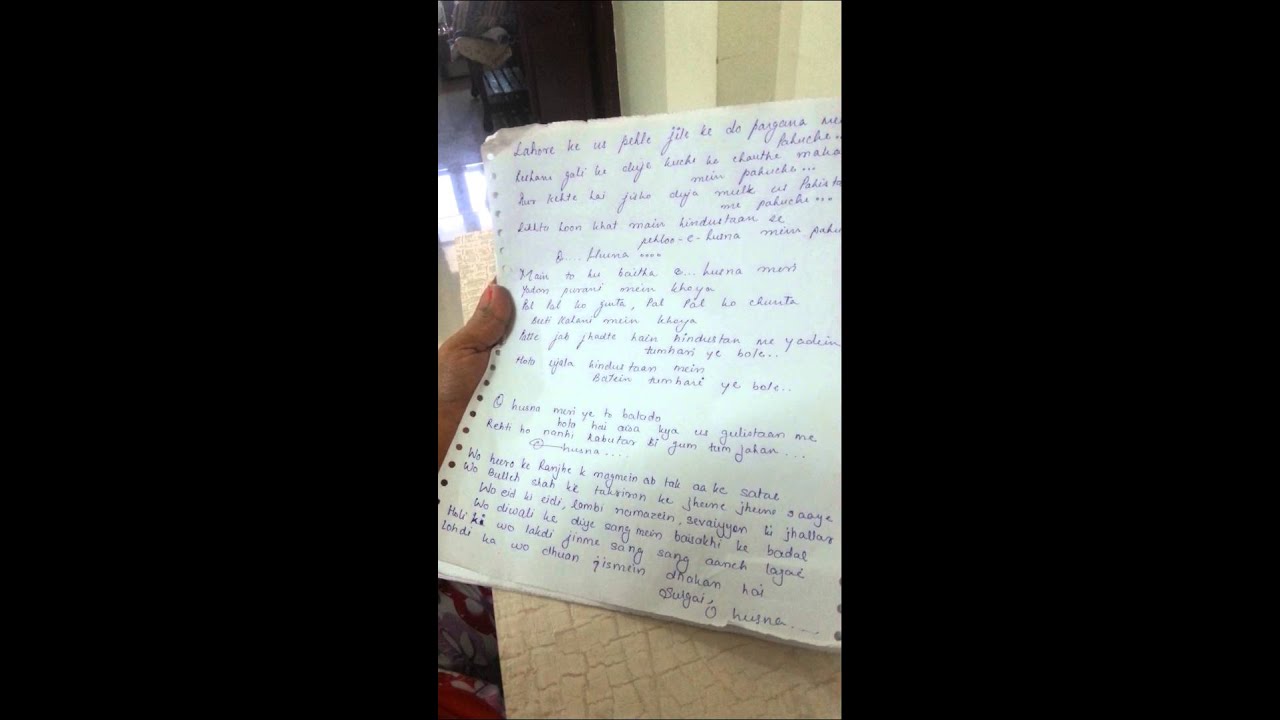 Lahore ke us pehle jile ke do pargana me
Pahuche..
Reshami gali ke duje kuche ke chauthe maka
mein pahuche...
Aur kehte hai jisko duja mulk us Pakista
me pahuche...
Likhta hoon khat main hindustaan se
pehloo-e-husna mein pahu
O.... Husna ....
Main to hu baitha o... husna meri
Yadon purani mein khoya
Pal Pal ko ginta, Pal Pal ko chunta
Beeti Kahani mein khoya
Patte jab jhadte hain hindustan me yadein
tumhari ye bole..
Hota ujala hindustaan mein
Batein tumhari ye bole..
O husna meri ye to batado
hota hai aisa kya us gulistaan me
Rehti ho nanhi kabutar si gum tum jahan...
O husna....
Wo heero ke Ranjhe k nagmein ab tak aa ke satae
Wo Bulleh shah ke takriron ke jheene jheene saaye
Wo eid ki eidi, lambi namazein, sevaiyyon ki jhallar
Wo diwali ke diye sang mein baisakhi ke badal
Holi ki wo lakdi jinme sang sang aanch lagai
Lohdi ka wo dhuan jismein dhakan hai
Sulgai, O husna....